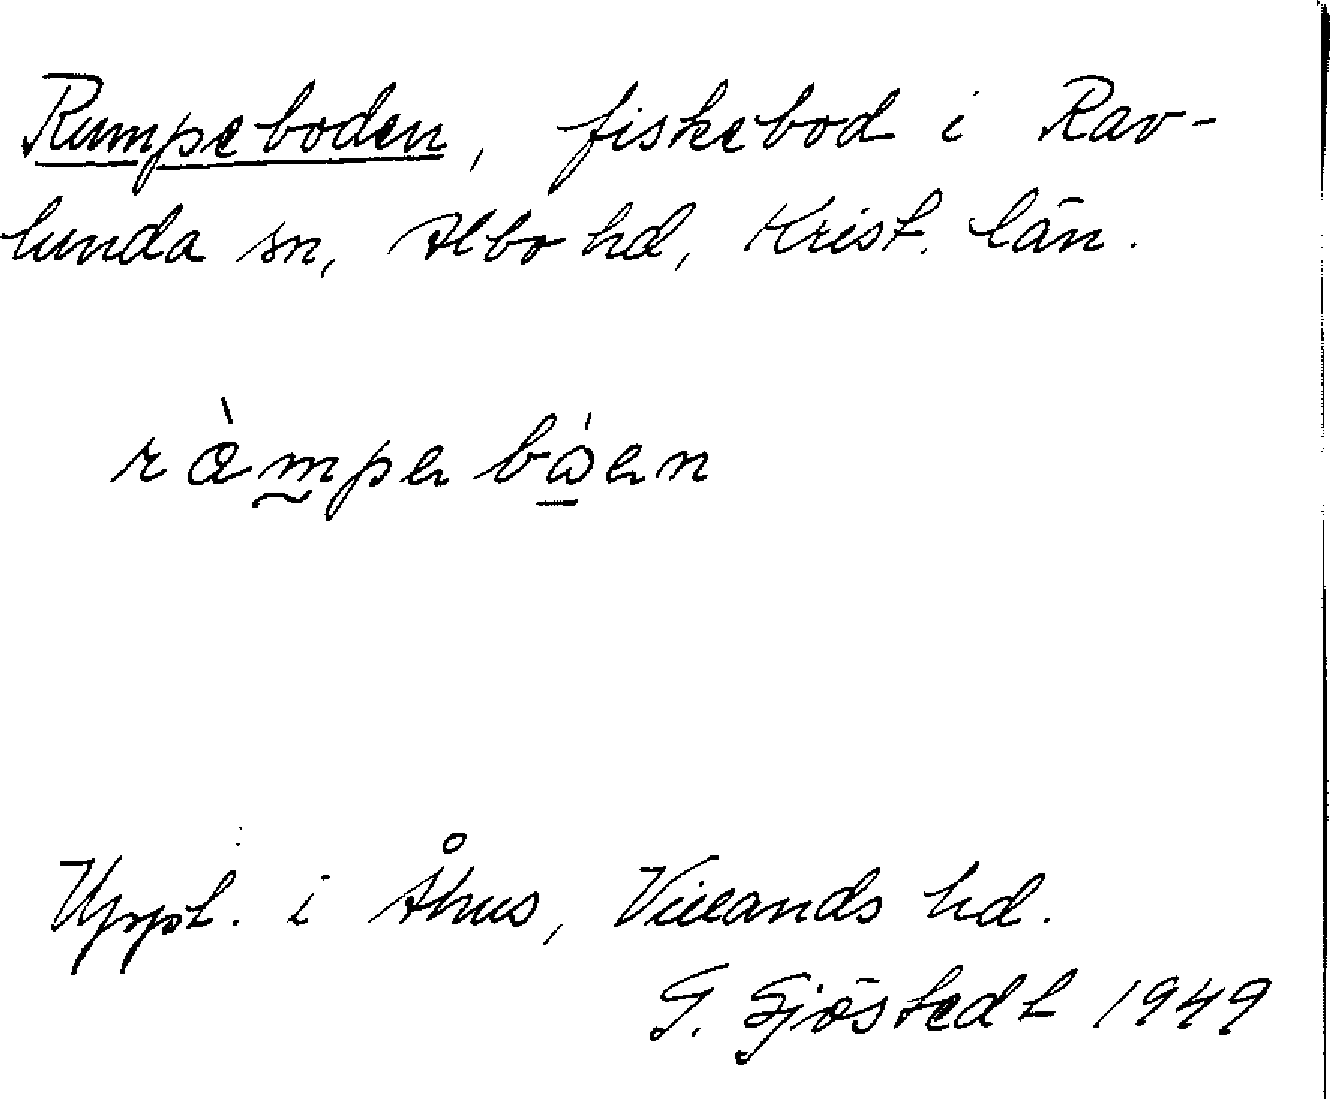 Rumpeboden, fiskebod i Rav-
lunda sn, Albo hd, Krist. län.
ròmpebóen
Uppt. i Åhus, Villands hd.
G. Sjöstedt 1949